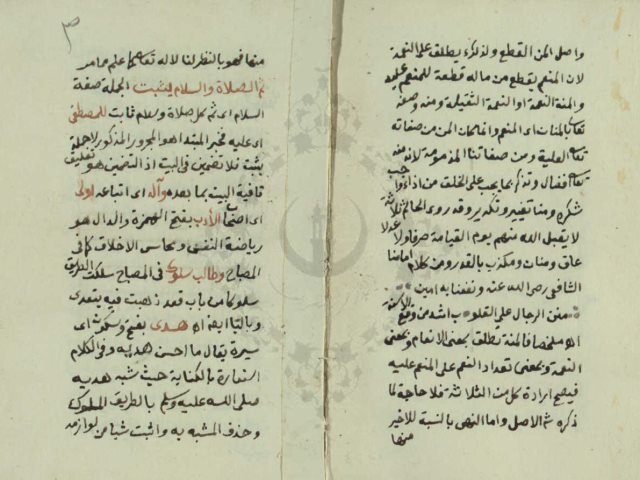 واصل المن القطع ولذلك يطلق على النعمة
لان المنعم يقطع من ماله قطعة للمنعم عليه
والمنة النعمة او النعمة الثقيلة ومنه وصفه
تعا بالمنان اى المنعم وانما كان المن من صفاته
تعا العلية ومن صفاتنا المذمومة لانه منه
تعا افضال وتذكير بما يجب على الخلق من اداء واجب
شكره ومنا تغيير وتكدير وقد روى الحاكم ثلاثة
لا يقبل الله منهم يوم القيامة صرفا ولا عدلا
عاق ومنان ومكذب بالقدر ومن كلام امامنا
الشافعى رضى الله عنه ونفعنا به امين
منن الرجال على القلوب اشد من وقع الاسنة
اه ملخصا فالمنة تطلق بمعنى الانعام وبمعنى
النعمة وبمعنى تعداد النعم على المنعم عليه
فيصح ارادة كل من الثلاثة فلا حاجة لما
ذكره شم الاصل واما النهى بالنسبة للاخير
منها
٣
منها فهو بالنظر لنا لا له تعا كما علم مما مر
ثم الصلاة والسلام يثبت الجملة صفة
السلام اى ثم كل صلاة وسلام ثابت للمصطفى
اى عليه فخبر المبتدا هو المجرور المذكور لا جملة
يثبت فلا تضمين فى البيت اذ التضمين هو تعليق
قافية البيت بما بعده وآله اى اتباعه اولى
اى اصحاب الأدب بفتح الهمزة والدال هو
رياضة النفس ومحاسن الاخلاق كما فى
المصباح وطالب سلوك فى المصباح سلكت الطريق
سلوكا من باب قعد ذهبت فيه يتعدى
وبالباء اه هدى بفتح وسكون اى
سيرة يقال ما احسن هديه وفى الكلام
استعارة بالكناية حيث شبه هديه
صلى الله عليه وسلم بالطريق المسلوك
وحذف المشبه به واثبت شيا من لوازمه